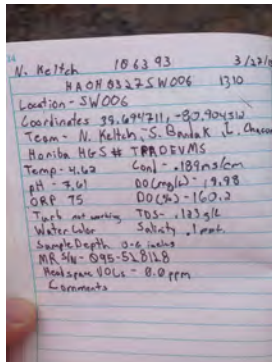 N. Keltch 106393 3/27/1
HAOH0327SW006 1310
Location - SW006
Coordinates 35.694711, -80.904512
Team - N. Keltch, S. Bondak, L. Chacon
Horiba HGS# TPADEVMS
Temp - 4.62 Cond - .189ms/cm
pH - 7.61 DO(mg/L) - 19.98
ORP 75 DO(%) - 160.2
Turb not working TDS - .123 g/L
Water Color Salinity .1 ppt.
Sample Depth 0-6 inches
MR S/N - 095-528128
Headspace VOCs - 0.0 ppm
Comments